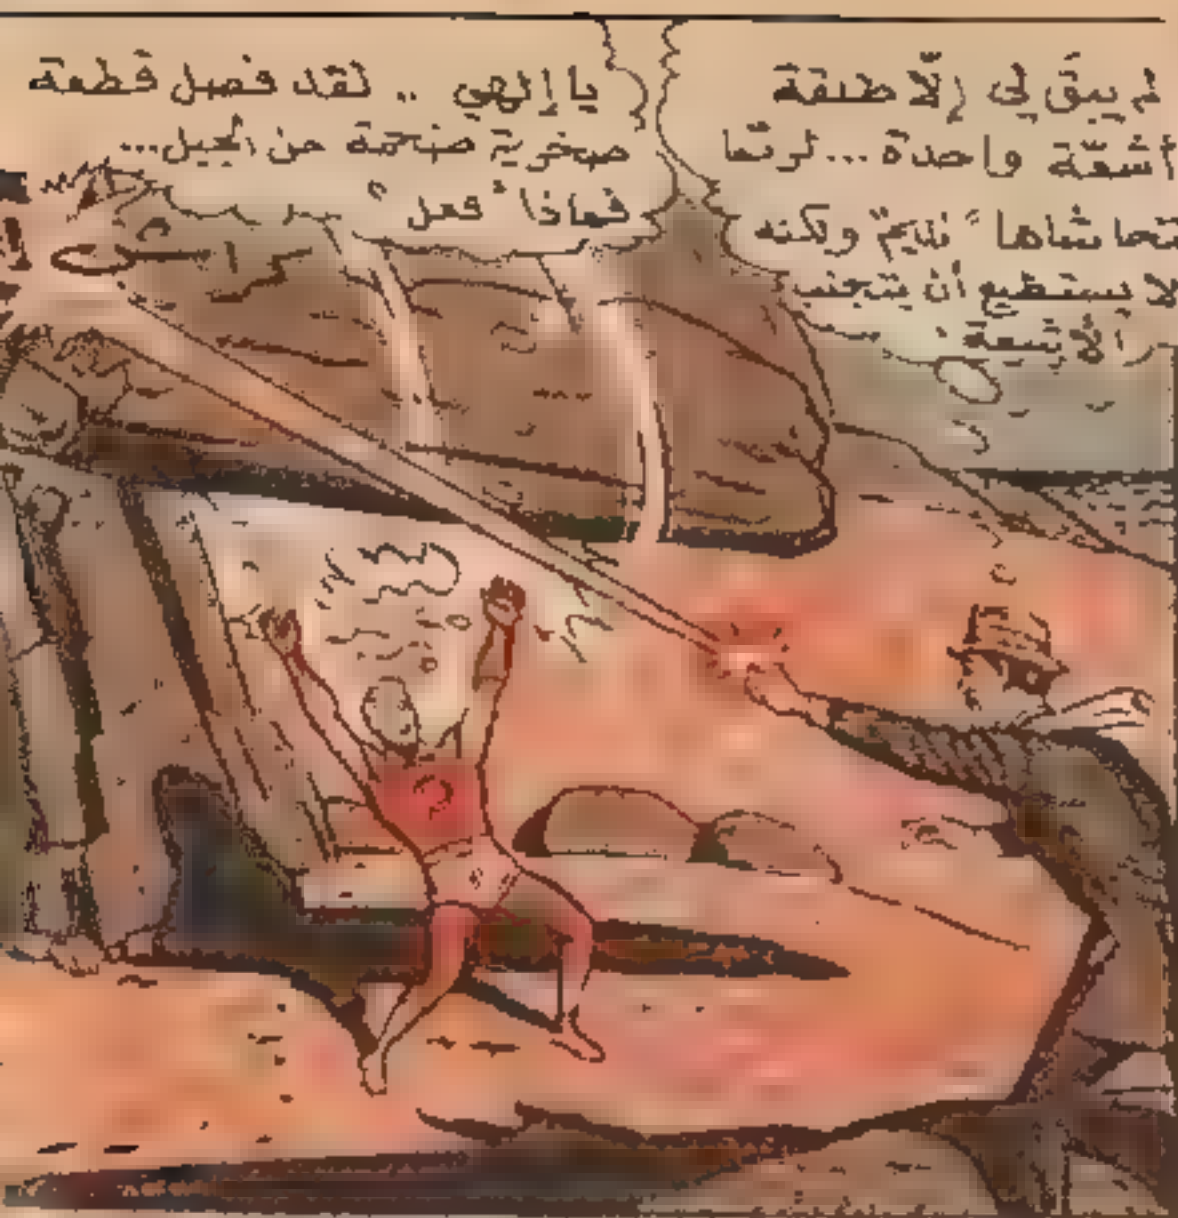 لم يبقَ لي إلّا طلقة
أشعّة واحدة... لربّما
تتحاشاها "نديم" ولكنه
لا يستطيع أن يتجنب
الأشعة
يا إلهي .. لقد فصل قطعة
صخرية ضخمة من الجبل...
فماذا فعل